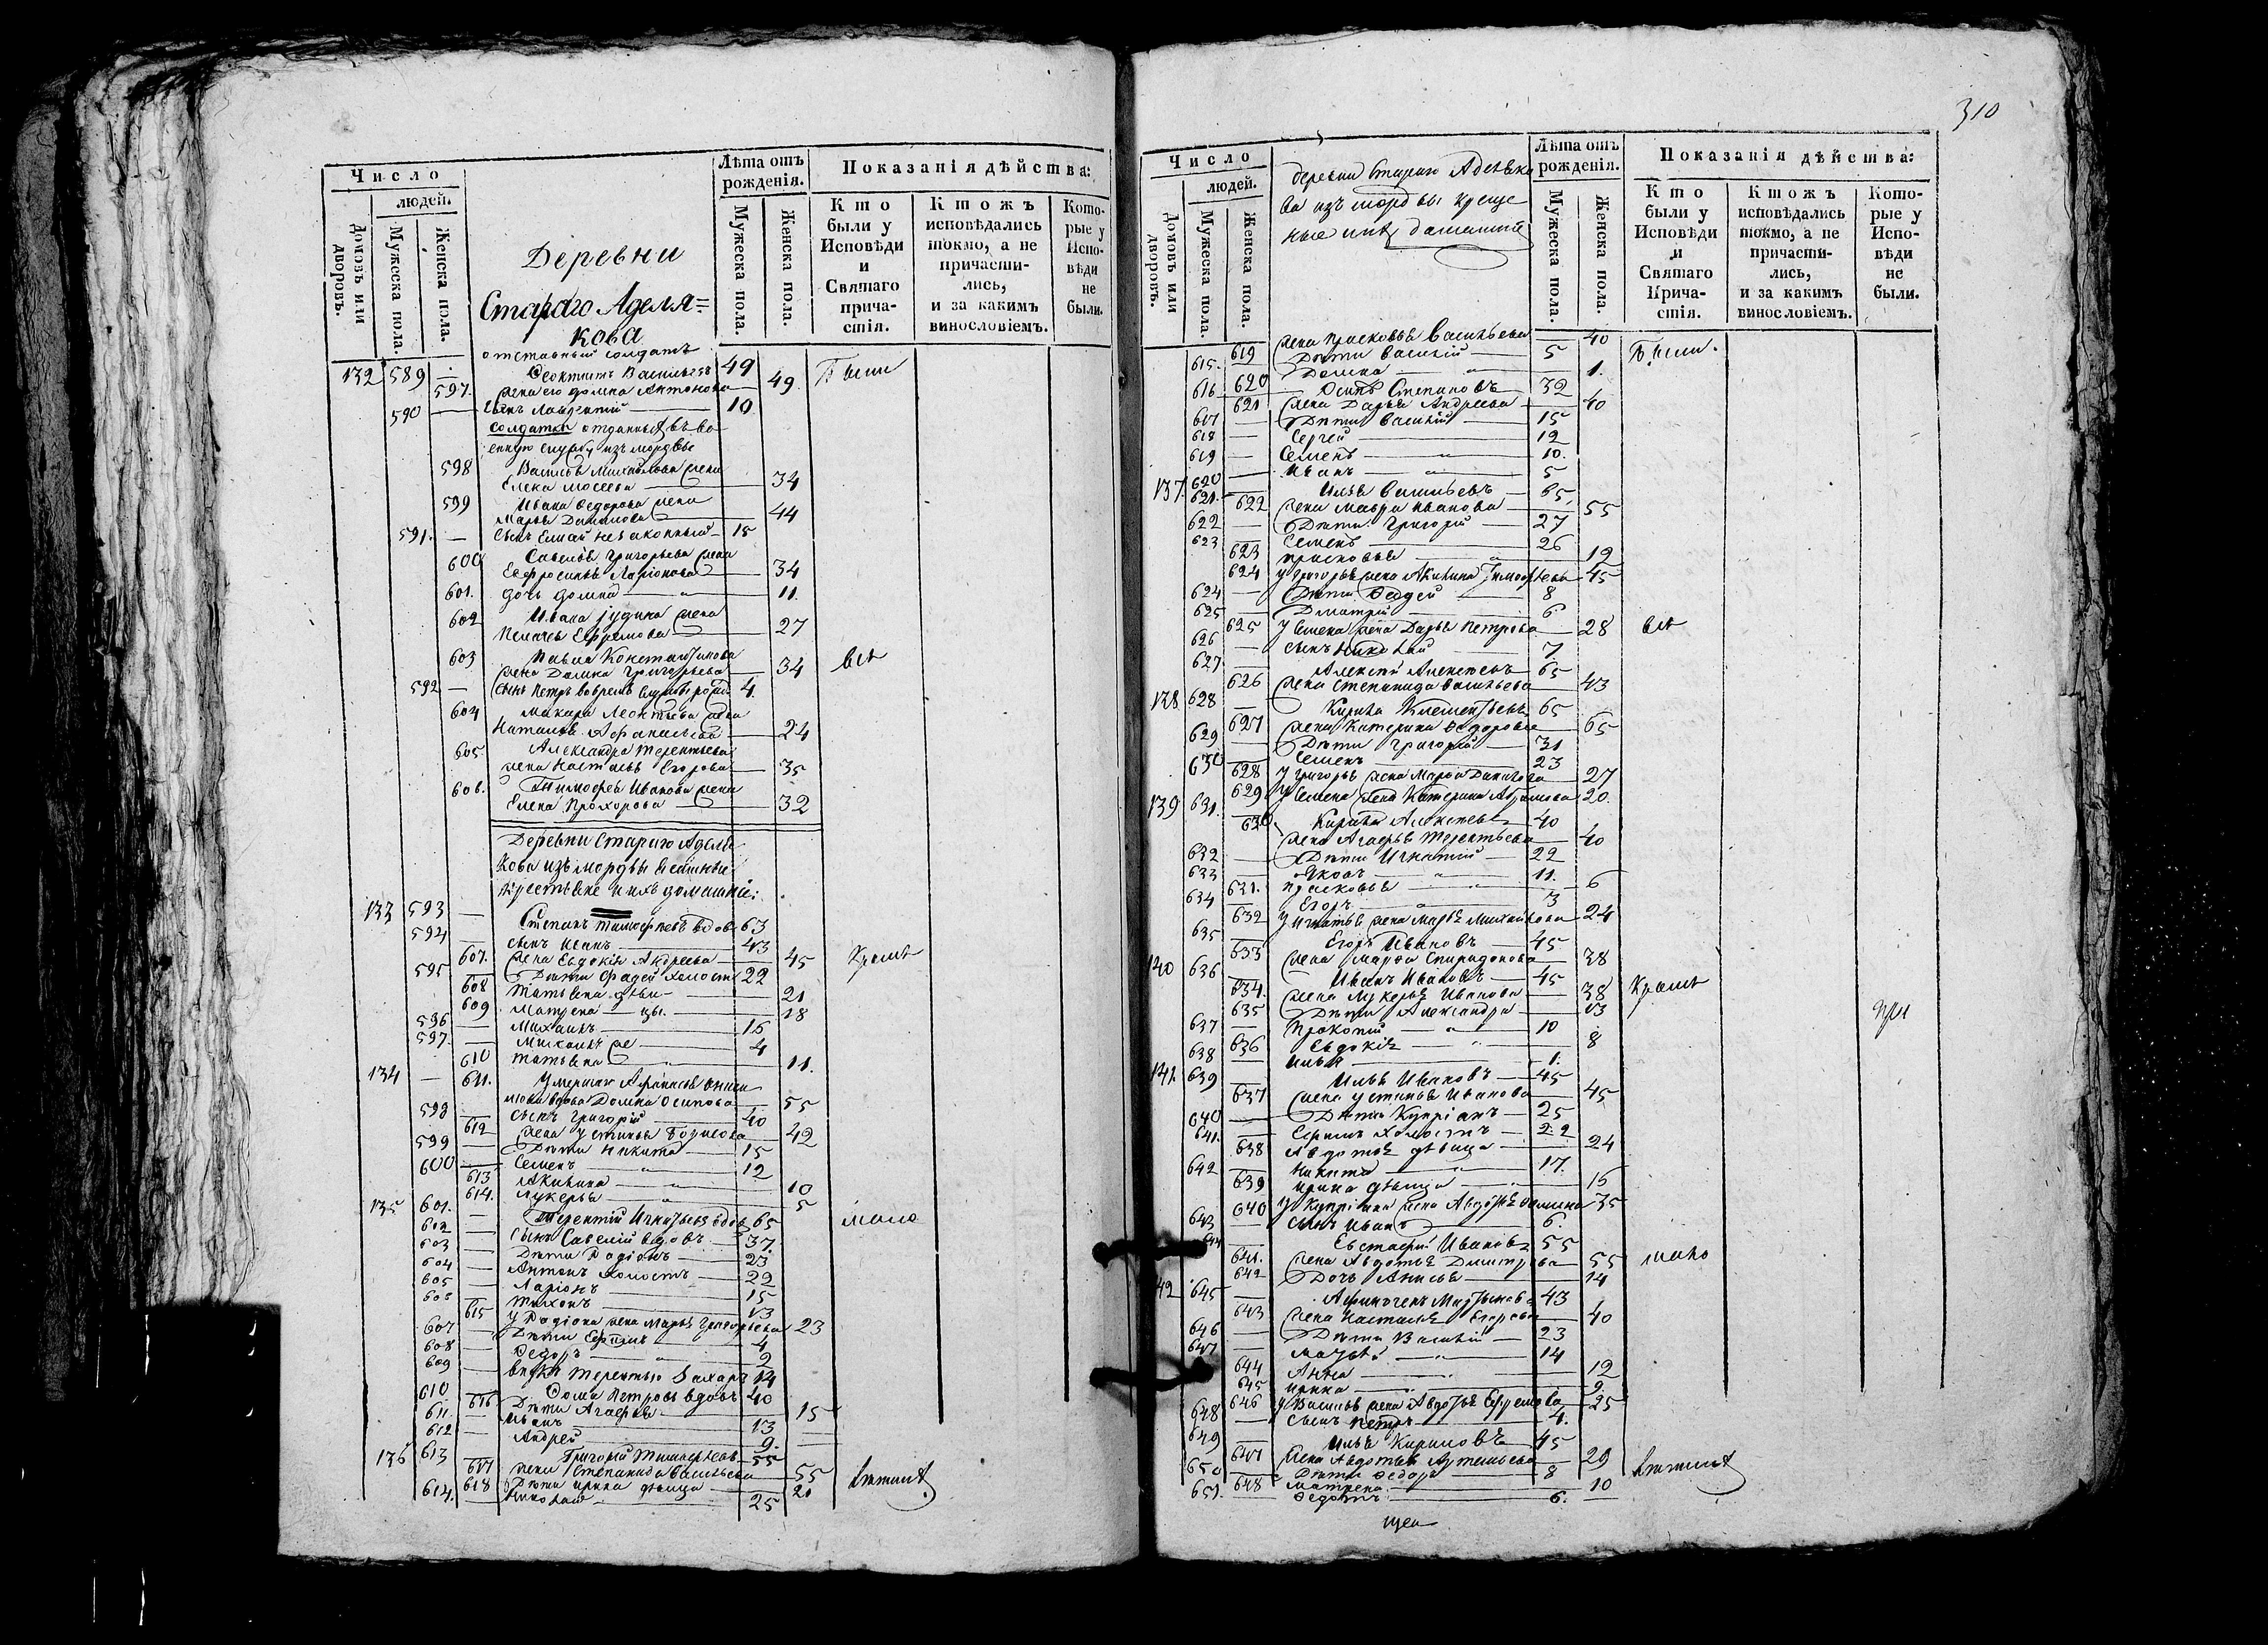 310
Число
людей.
Домовъ или дворовъ.
Мужеска пола.
Женска пола.
Деревни
Стараго Аделя=
кова
Лѣта отъ рожденія.
Мужеска пола.
Женска пола.
Показанія дѣйства:
Кто были у Исповѣди и Святаго причастія.
Ктожъ исповѣдались токмо, а не причастились, и за какимъ винословіемъ.
Которые у Исповѣди не были.
отставный солдатъ
132 589 Феоктистъ Васильевъ 49 Были
597. жена его Домна Антонова 49.
590 сынъ Лаврентій 10
солдатки отданныхъ въ во
енную службу изъ мордвы
598 Василья Михайлова жена
Елена Мосеева 34
599 Ивана Федорова жена
Марья Данилова 44
591. сынъ Елисей незаконный 15
600 Савелья Григорьева жена
Евфросинья Ларіонова 34
601. дочь Домна 11.
602 Ивана Іудина жена
Пелагея Ефремова 27
603 Павла Константинова
жена Домна Григорьева 34 всѣ
592 сынъ Петръ 4.
604 Макара Леонтьева жена
Наталья Афанасьева 24
605 Александра Терентьева
жена Настасья Егорова 35
606. Тимофея Иванова жена
Елена Прохорова 32
Деревни Стараго Аделя
кова изъ мордвы
крестьяне и ихъ домашніе:
133 593 Степанъ Тимофеевъ вдов 63
594 сынъ Иванъ 43
607. жена Евдокія Андреева 45 Кромѣ
595 Дѣти Фадей холостъ 22
608 Татьяна дѣвица 21
609 Матрена 18
596 Михаилъ 16
597. Михаилъ же 4
610 Татьяна 11.
134 611. Умершаго Афанасья
вдова Домна Осипова 55
598 сынъ Григорій 40
612 жена Устинья Борисова 42
599 Дѣти Никита 15
600 Семенъ 12
613 Акилина 10
614. Лукерья 5
135 601. Терентій Игнатьевъ вдов 65 мало
602 сынъ Савелій вдовъ 37.
603 Дѣти Родіонъ 23
604 Антонъ холостъ 22
605 Ларіонъ 15
606 Тихонъ 13
615 У Родіона жена Марья Григорьева 23
607 Дѣти Ефимъ 4
608 Федоръ 2
609 внукъ Терентью Захаръ 14
610 Фома Петровъ вдовъ 40
616 Дѣти Агафья 15
611. Иванъ 13
612 Андрей 9.
136 613 Григорій Тимофеевъ 55
617 жена Степанида Васильева 55
618 Дѣти Ирина дѣвица 21
614. Николай 25
Число
людей.
Домовъ или дворовъ.
Мужеска пола.
Женска пола.
деревни Стараго Аделяко
ва изъ мордвы креще
ные и ихъ домашніе
Лѣта отъ рожденія.
Мужеска пола.
Женска пола.
Показанія дѣйства:
Кто были у Исповѣди и Святаго Причастія.
Ктожъ исповѣдались токмо, а не причастились, и за какимъ винословіемъ.
Которые у Исповѣди не были.
619 жена Прасковья Васильева 40 Были.
615. Дѣти Василій 5
620 Домна 1.
616 Осипъ Степановъ 32
621 жена Дарья Андреева 40
617 Дѣти Василій 15
618 Сергей 12
619 Семенъ 10.
620 Иванъ 5
137. 621. Илья Васильевъ 65,
622 жена Мавра Иванова 55
622 Дѣти Григорій 27
623 Семенъ 26
623 Прасковья 19
624 У Григорья жена Акилина Тимофеева 45
624 Дѣти Фадей 8
625 Дмитрій 6
625 У Семена жена Дарья Петрова 28 всѣ
626 сынъ Николай 7
627 Алексѣй Алексѣевъ 65
626 жена Степанида Васильева 43
138 628 Кирила Клементьевъ 65
627 жена Катерина Федорова 65
629 Дѣти Григорій 31
630 Семенъ 23
628 У Григорья жена Марья Данилова 27
629 У Семена жена Катерина Абрамова 20.
139 631. Кирила Алексѣевъ 40
630. жена Агафья Терентьева 40
632 Дѣти Игнатій 22
633 Яковъ 11.
631. Прасковья 6
634 Егоръ 3
632 У Игнатья жена Марья Михайлова 24
635 Егоръ Ивановъ 45
633 жена Марфа Спиридонова 38
140 636 Иванъ Ивановъ 45
634. жена Лукерья Иванова 38 Кромѣ
635 Дѣти Александра 13
637 Прокопій 10
636 Евдокія 8
638 Илья 1.
141. 639 Илья Ивановъ 45
637 жена Устинья Иванова 45
640 Дѣти Купріанъ 25
641. Ефимъ холостъ 22
638 Авдотья дѣвица 24
642 Никита 17.
639 Ирина дѣвица 16
640 У Купріяна жена Авдотья Фомина 35
643 сынъ Иванъ 6.
644 Евстафій Ивановъ 55
641. жена Авдотья Дмитрева 55 мало
642 Дочь Анисья 14
142 645 Афиногенъ Мартыновъ 43
643 жена Настасья Егорова 40
646 Дѣти Василій 23
647 14
644 Анна 12
645 Ирина 9.
646 У Василья жена Авдотья Ефремова 25
648 сынъ Петръ 4.
649 Илья Кириловъ 45
647 жена Авдотья Артемьева 29
650 Дѣти Федоръ 8
648 Матрена 10
651. Федотъ 6.